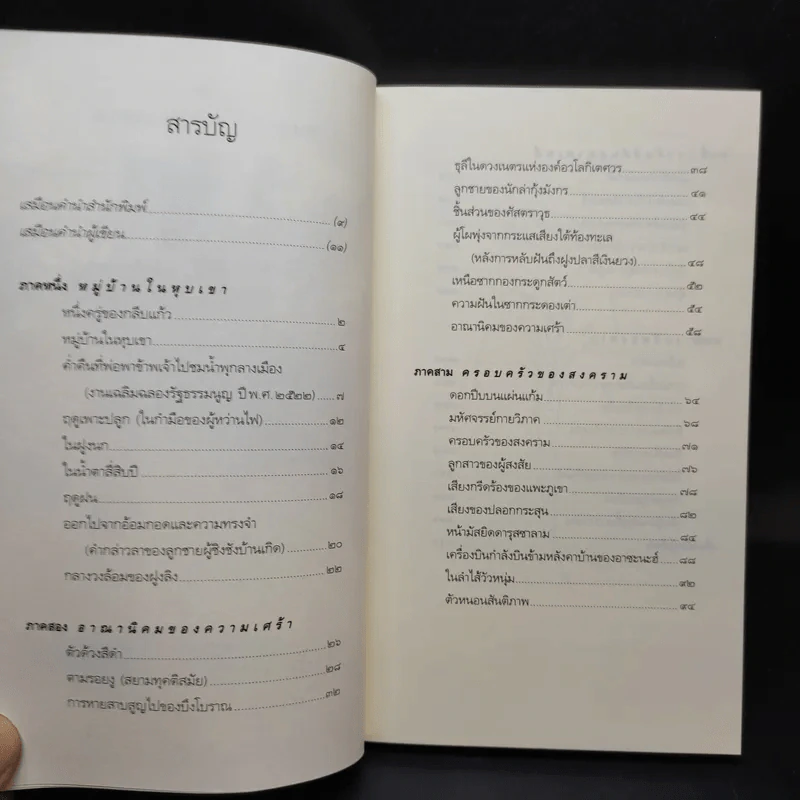 สารบัญ
เสมือนคำนำสำนักพิมพ์ (๙)
เสมือนคำนำผู้เขียน (๑๑)
ภาคหนึ่ง หมู่บ้านในหุบเขา
หนึ่งครู่ของกลีบแก้ว ๒
หมู่บ้านในหุบเขา ๔
ค่ำคืนที่พ่อพาข้าพเจ้าไปชมน้ำพุกลางเมือง
(งานเฉลิมฉลองรัฐธรรมนูญ ปีพ.ศ.๒๕๒๒) ๗
ฤดูเพาะปลูก (ในกำมือของผู้หว่านไฟ) ๑๒
ในฝูงนก ๑๔
ในน้ำตาสี่สิบปี ๑๖
ฤดูฝน ๑๘
ออกไปจากอ้อมกอดและความทรงจำ
(คำกล่าวลาของลูกชายผู้ชิงชังบ้านเกิด) ๒๐
กลางวงล้อมของฝูงลิง ๒๒
ภาคสอง อาณานิคมของความเศร้า
ตัวด้วงสีดำ ๒๖
ตามรอยงู (สยามทุคติสมัย) ๒๘
การหายสาบสูญไปของบึงโบราณ ๓๒
ธุลีในดวงเนตรแห่งองค์อวโลกิเตศวร ๓๘
ลูกชายของนักล่ากุ้งมังกร ๔๑
ชิ้นส่วนของศัสตราวุธ ๔๔
ผู้โผพุ่งจากกระแสเสียงใต้ท้องทะเล
(หลังการหลับฝันถึงฝูงปลาสีเงินยวง) ๔๘
เหนือซากกองกระดูกสัตว์ ๕๒
ความฝันในซากกระดองเต่า ๕๔
อาณานิคมของความเศร้า ๕๘
ภาคสาม ครอบครัวของสงคราม
ดอกปีบบนแผ่นแก้ม ๖๔
มหัศจรรย์กายวิภาค ๖๘
ครอบครัวของสงคราม ๗๑
ลูกสาวของผู้สงสัย ๗๖
เสียงกรีดร้องของแพะภูเขา ๗๘
เสียงของปลอกกระสุน ๘๒
หน้ามัสยิดดารุสซาลาม ๘๔
เครื่องบินกำลังบินข้ามหลังคาบ้านของอาซะนะฮ์ ๘๘
ในลำไส้วัวหนุ่ม ๙๒
ตัวหนอนสันติภาพ ๙๔